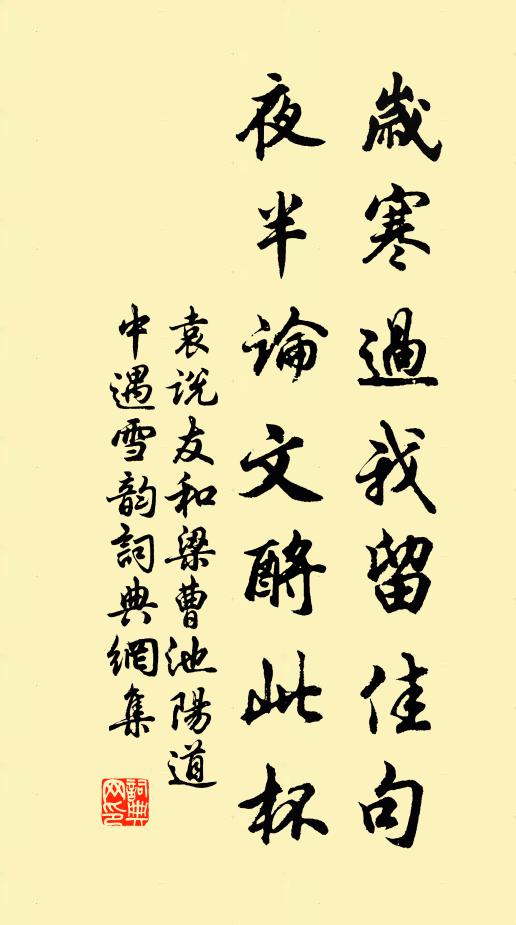 歲寒過我留佳句
夜半論文酹此杯
袁說友和梁曹池陽道
中遇雪韵詞典網集
詞典网印